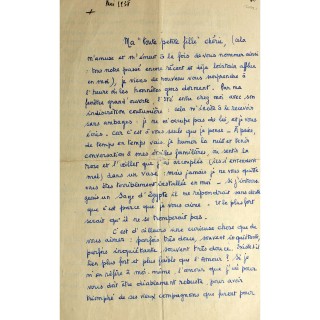 Mai 1938
Ma "toute petite fille" chérie, (cela
m'amuse et m'émeut à la fois de vous nommer ainsi
tout notre passé encore récent et déjà lointain afflue
en moi), je viens de nouveau vous surprendre à
l'heure où les honnêtes gens dorment. Par ma
fenêtre grand'ouverte, l'été entre chez moi avec son
indiscrétion coutumière ; cela m'incite à le recevoir
sans ambages : je ne m'occupe pas de lui, et je vous
écris. Car c'est à vous seule que je pense. À peine,
de temps en temps vais-je humer la nuit et tenir
conversation à nos étoiles familières, ou sentir la
rose et l'œillet que j'ai accouplés
dans un vase, mais jamais je ne vous quitte
vous êtes terriblement installée en moi. Si j'interro-
geais un Sage d'Égypte il me répondrait sans doute
que c'est parce que je vous aime. Le plus fort
serait qu'il ne se tromperait pas.
C'est d'ailleurs une curieuse chose que de
vous aimer : parfois très doux, souvent inquiétant,
parfois inquiétant, souvent très doux.
lien plus fort et plus faible que l'Amour ! Si je
m'en réfère à moi-même, l'amour que j'ai pour
vous doit être diablement robuste pour avoir
triomphé de ces vieux compagnons que furent pour